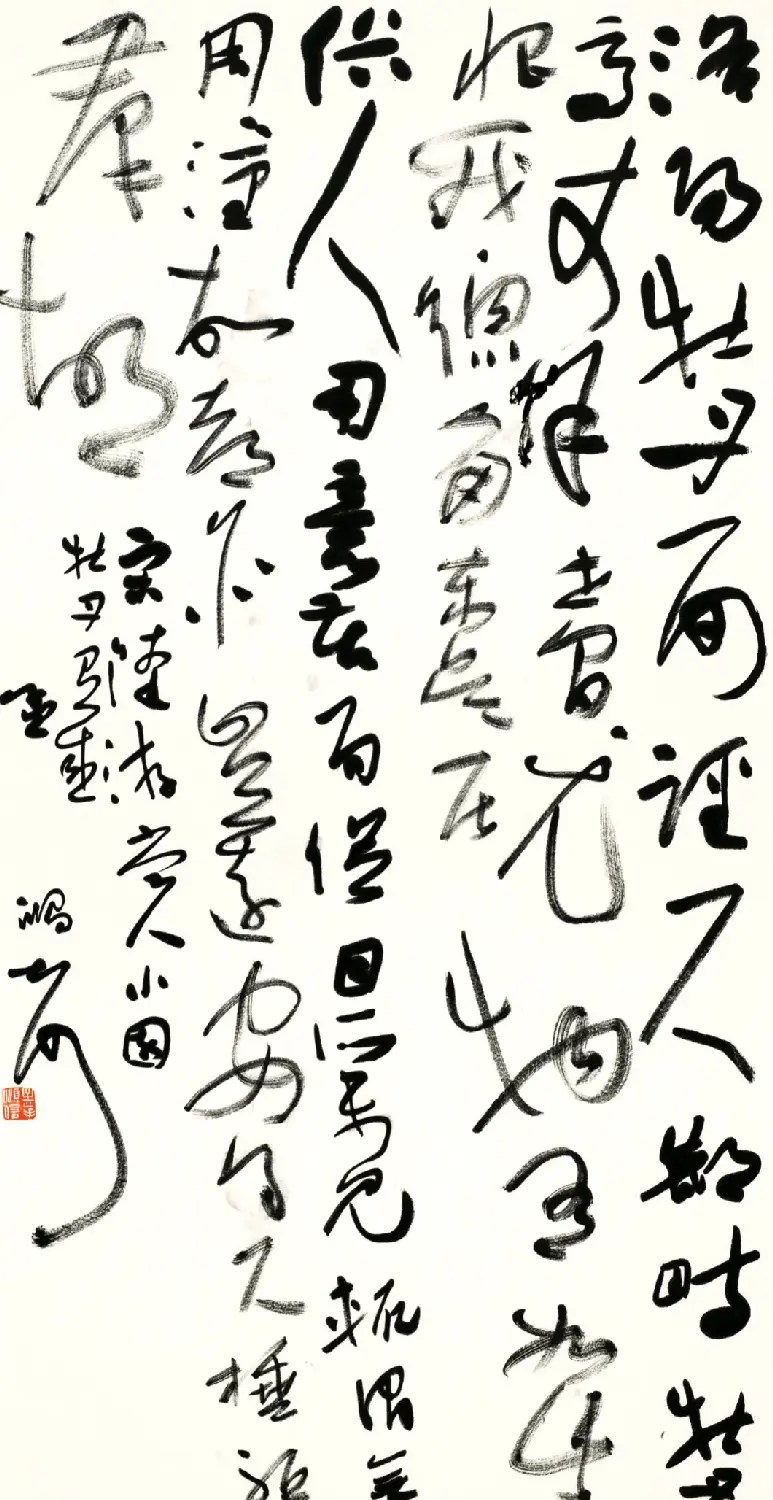 洛陽牡丹面徑尺鄜畤牡丹
高丈餘世間尤物有如此
恨我總角東吳居
俗人用意苦局促目所未見輒謂無
周漢故都亦豈遠安得尺棰驅
羣胡
宋陸游賞小園
牡丹有感
孟
鴻